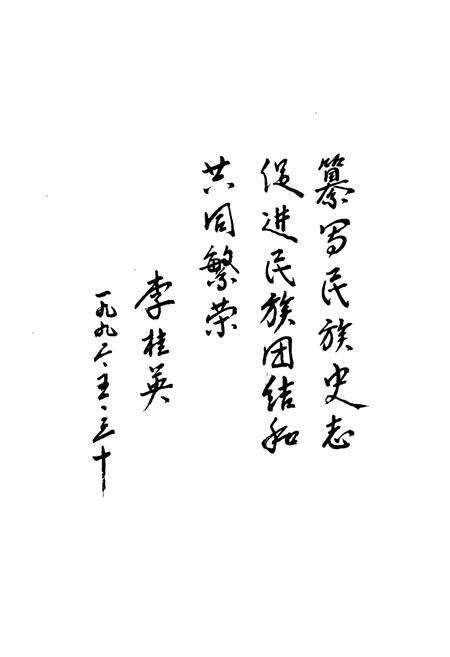 纂写民族史志
促进民族团结和
共同繁荣
李桂英
一九九六·五·三十